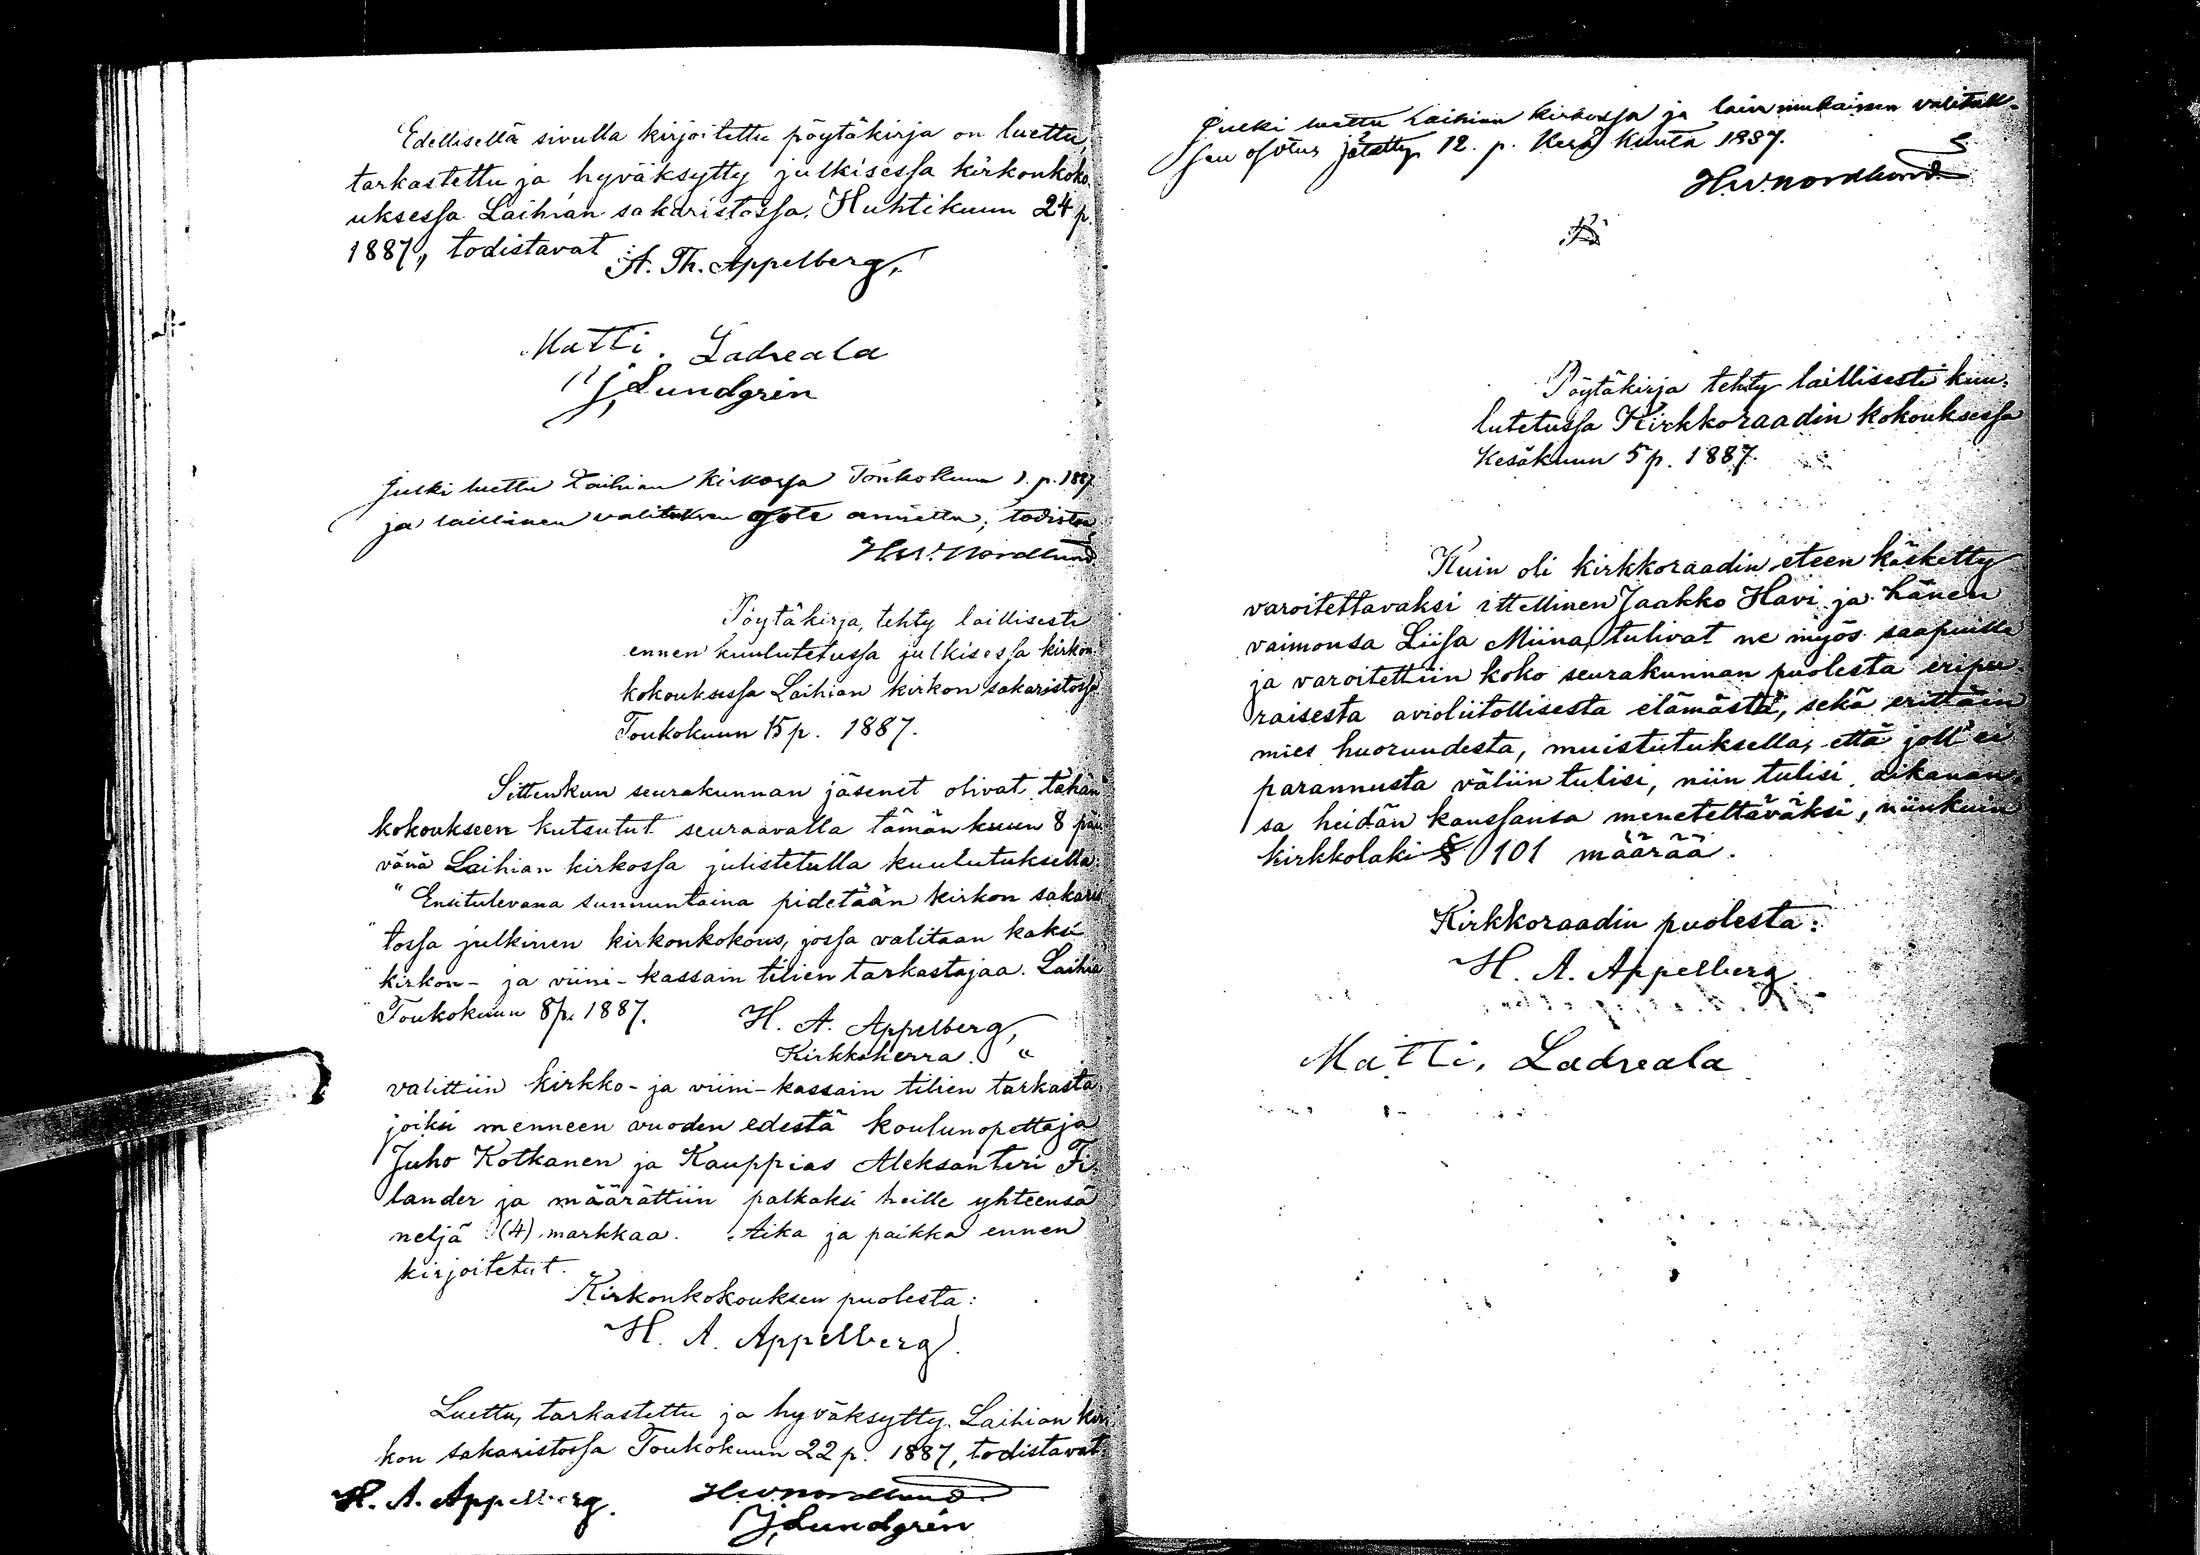 Edellisellä sivulla kirjoitettu pöytäkirja on luettu,
tarkastettu ja hyväksytty julkisessa kirkonkoko-
uksessa Laihian sakaristossa, Huhtikuun 24 p.
1887, todistavat
A. Th. Appelberg,
Matti. Ladreala
J. Lundgrén
Julki luettu Laihian kirkossa Toukokuun 1. p. 1887
ja laillinen valituksen osote annettu; todistaa
H.W. Nordlund
Pöytäkirja, tehty laillisesti
ennen kuulutetussa julkisessa kirkon-
kokouksessa Laihian kirkon sakaristossa
Toukokuun 15 p. 1887.
Sittenkun seurakunnan jäsenet olivat tähän
kokoukseen kutsutut seuraavalla tämän kuun 8 päi-
vänä Laihian kirkossa julistetulla kuulutuksella:
"Ensitulevana sunnuntaina pidetään kirkon sakaris-
"tossa julkinen kirkonkokous, jossa valitaan kaksi
"kirkon- ja viini-kassain tilien tarkastajaa. Laihia
"Toukokuun 8 p. 1887. H. A. Appelberg,
Kirkkoherra. "
valittiin kirkko- ja viini-kassain tilien tarkasta-
joiksi menneen vuoden edestä koulunopettaja
Juho Kotkanen ja Kauppias Aleksanteri Fi-
lander ja määrättiin palkaksi heille yhteensä
neljä (4) markkaa. Aika ja paikka ennen
kirjoitetut.
Kirkonkokouksen puolesta:
H. A. Appelberg.
Luettu, tarkastettu ja hyväksytty Laihian kir-
kon sakaristossa Toukokuun 22 p. 1887, todistavat:
H. A. Appelberg. H.W. Nordlund
J. Lundgrén
Julki luettu Laihian kirkossa ja lain mukainen valituk-
sen osotus jätetty 12. p. Kesä Kuuta 1887.
H.W. Nordlund
Pöytäkirja tehty laillisesti kuu-
lutetussa Kirkkoraadin kokouksessa
Kesäkuun 5 p. 1887.
Kuin oli kirkkoraadin eteen käsketty
varoitettavaksi ittellinen Jaakko Havi ja hänen
vaimonsa Liisa Miina, tulivat ne myös saapuille
ja varoitettiin koko seurakunnan puolesta eripu-
raisesta avioliitollisesta elämästä, sekä erittäin
mies huoruudesta, muistutuksella, että joll' ei
parannusta väliin tulisi, niin tulisi aikanan-
sa heidän kanssansa meneteltäväksi, niinkuin
kirkkolaki § 101 määrää.
Kirkkoraadin puolesta:
H. A. Appelberg
Matti. Ladreala